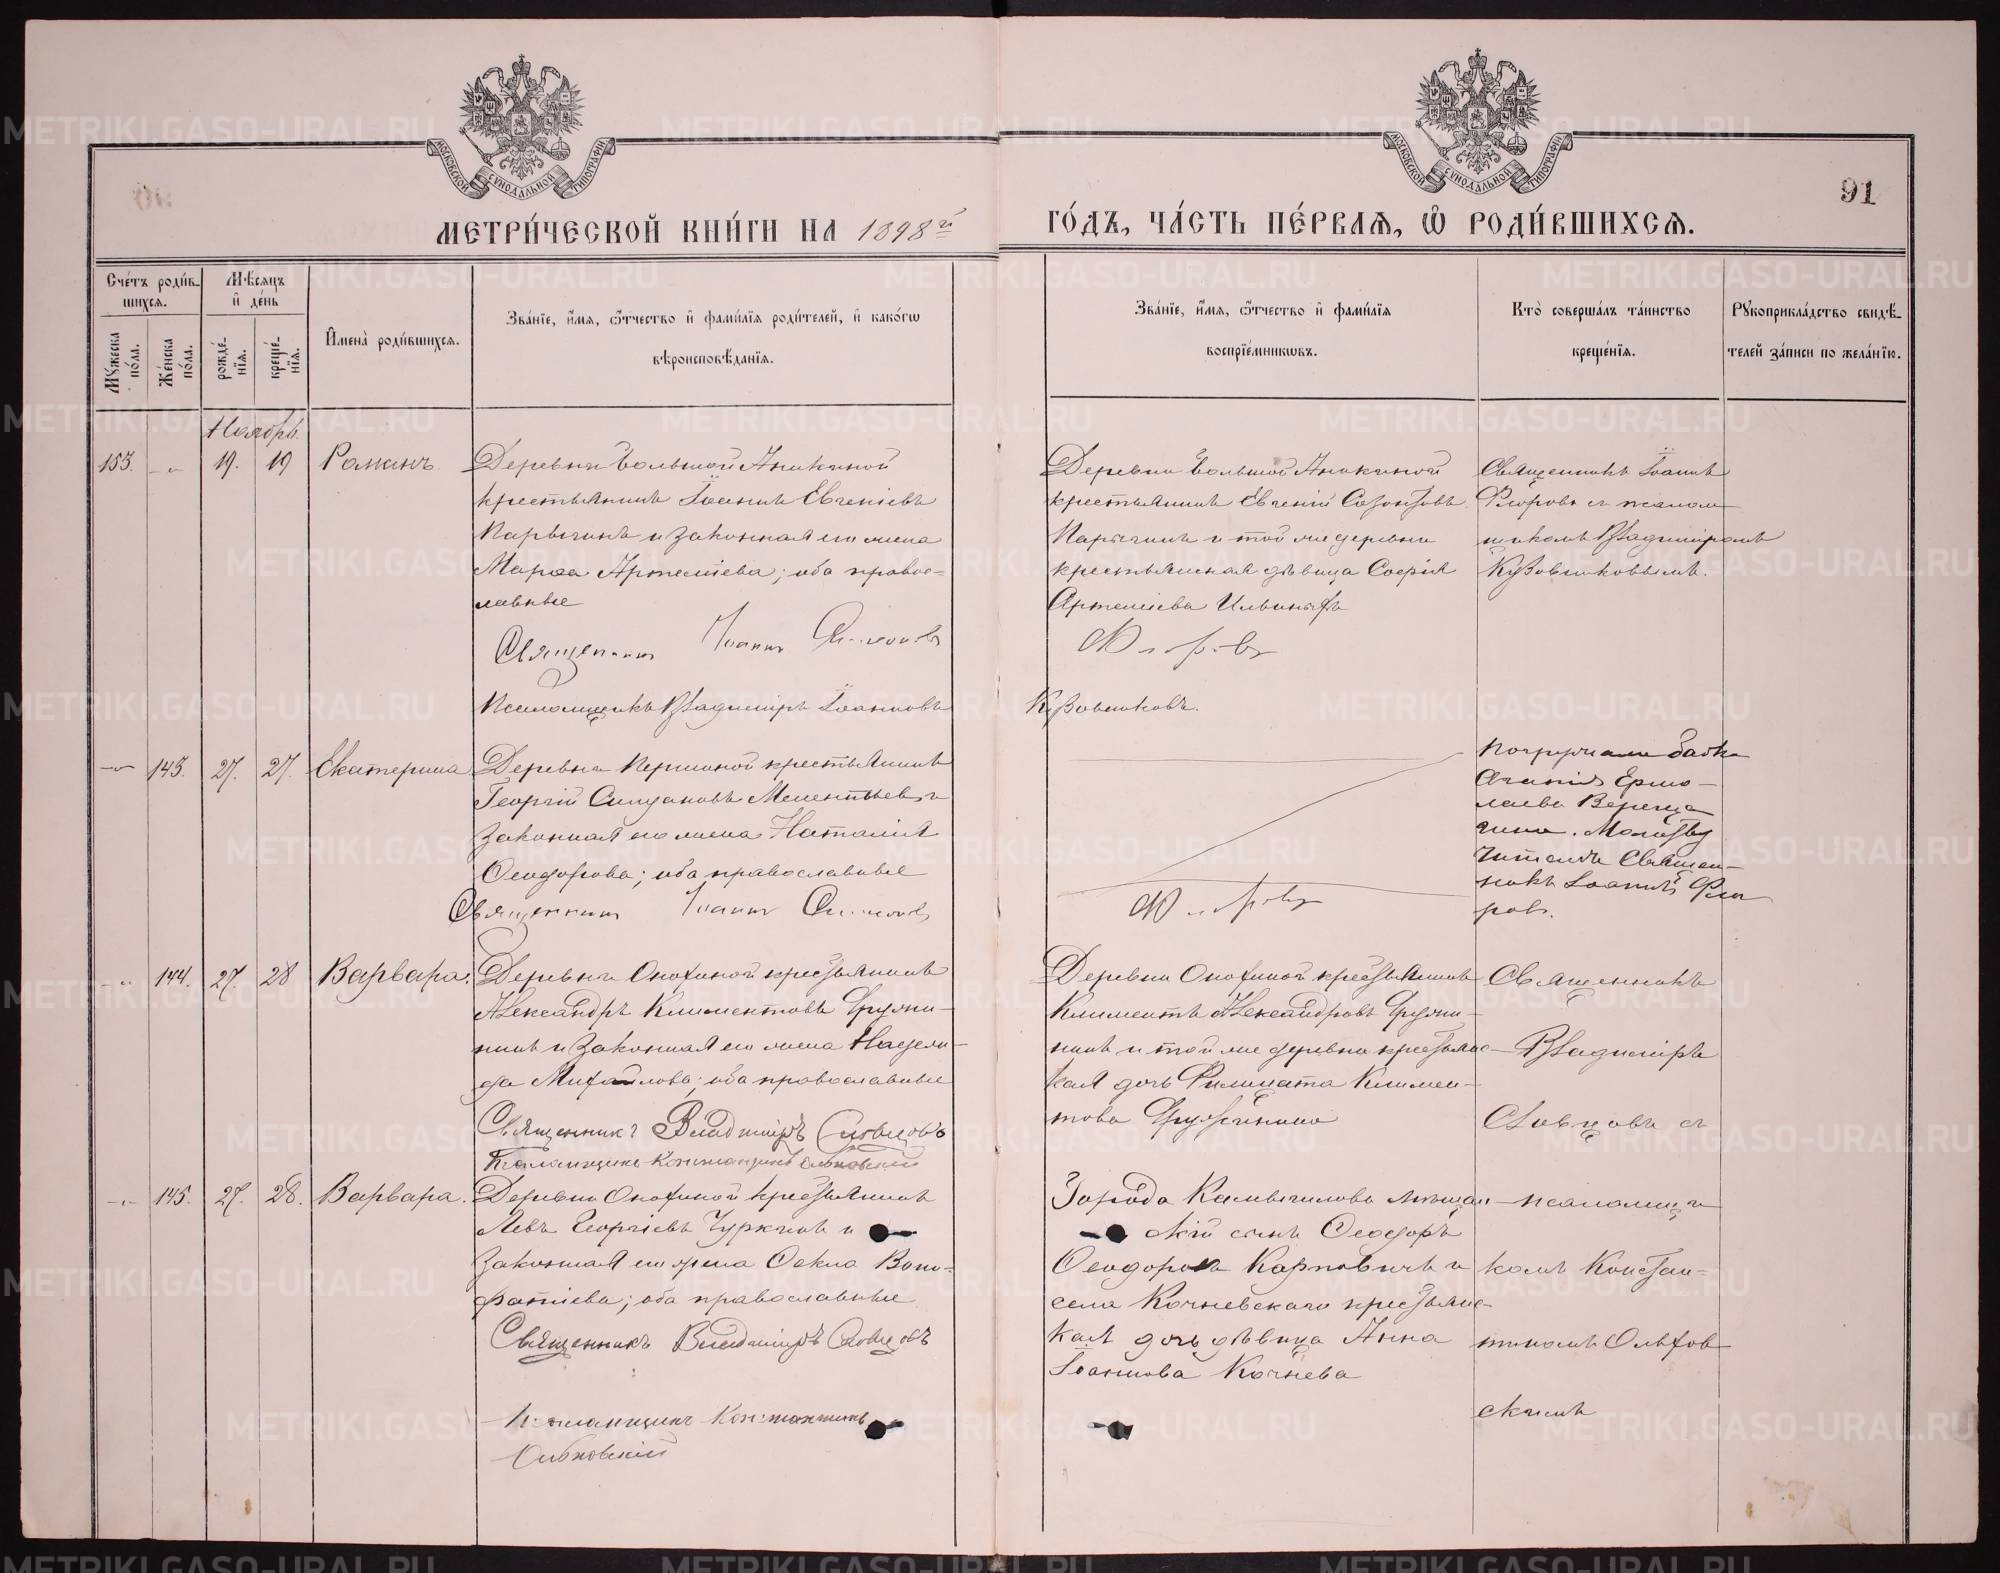 МОСКОВСКОЙ СУНОДАЛЬНОЙ ТИПОГРАФІИ
МОСКОВСКОЙ СУНОДАЛЬНОЙ ТИПОГРАФІИ
91
МЕТРИ́ЧЕСКОЙ КНИ́ГИ НА 1898й ГО́ДЪ, ЧА́СТЬ ПЕ́РВАЯ, Ѽ РОДИ́ВШИХСЯ.
Сче́тъ роди́в-
шихся.
Мѣ́сяцъ
и҆ де́нь
Мꙋжеска по́ла.
Же́нска по́ла.
рожде́нїя.
креще́нїя.
И҆мена̀ роди́вшихся.
Зва́нїе, и҆́мя, ѻ҆́тчество и҆ фами́лїя роди́телей, и҆ како́гѡ
вѣроисповѣ́данїя.
Зва́нїе, и҆́мя, ѻ҆́тчество и҆ фами́лїя
воспрїе́мникѡвъ.
Кто̀ соверша́лъ та́инство
креще́нїя.
Рꙋкоприкла́дство свидѣ́-
телей за́писи по жела́нїю.
Ноябрь.
153.
19.
19
Романъ.
Деревни Большой Аникиной
крестьянинъ Іоаннъ Евгеніевъ
Парыгинъ и законная его жена
Марѳа Артеміева; оба право-
славные
Священникъ Іоаннъ
Флоровъ
Псаломщикъ Владиміръ Іоанновъ
Кузовниковъ.
Деревни Большой Аникиной
крестьянинъ Евгеній Созонтовъ
Парыгинъ и той же деревни
крестьянская дѣвица Софія
Артеміева Ильиныхъ
Священникъ Іоаннъ
Флоровъ съ псалом-
щикомъ Владиміромъ
Кузовниковымъ.
143.
27.
27.
Екатерина
Деревни Першиной крестьянинъ
Георгій Силуановъ Мелентьевъ и
законная его жена Наталія
Ѳеодорова; оба православные
Священникъ Іоаннъ
Флоровъ
Погружали бабка
Агапія Ермо-
лаева Вереща-
гина. Молитву
читалъ Священ-
никъ Іоаннъ Фло-
ровъ.
144.
27.
28
Варвара.
Деревни Онохиной крестьянинъ
Александръ Климентовъ
законная его жена Надеж-
да Михайлова; оба православные
Священникъ Владиміръ Словцовъ
Псаломщикъ Константинъ Ольховскій
Деревни Онохиной крестьянинъ
Климентъ Александровъ
и той же деревни крестьянс-
кая дочь Филицата Климен-
това
Священникъ
Владиміръ
Словцовъ съ
145.
27.
28.
Варвара.
Деревни Онохиной крестьянинъ
Левъ Георгіевъ Чуркинъ и
законная его жена Ѳекла Вони-
фатіева; оба православные
Священникъ Владиміръ Словцовъ
Псаломщикъ Константинъ
Ольховскій
Города Камышлова мѣщан-
скій сынъ Ѳеодоръ
Ѳеодоровъ Карповичъ и
села Кочневскаго крестьянс-
кая дочь дѣвица Анна
Іоаннова Кочнева
псаломщи-
комъ Констан-
тиномъ Ольхов-
скимъ
METRIKI.GASO-URAL.RU